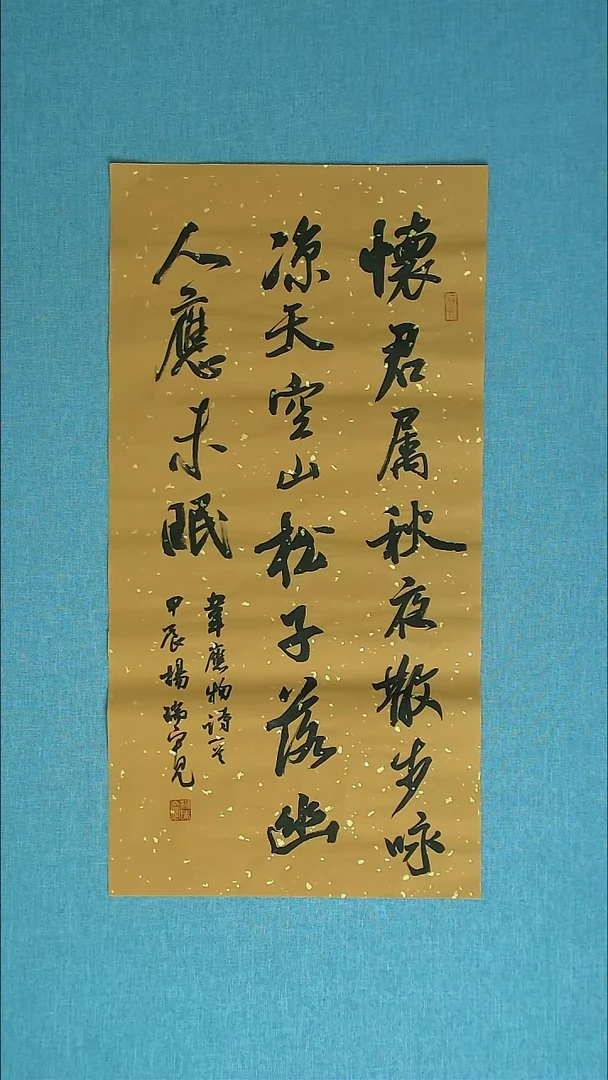 懷君属秋夜散步咏
凉天空山松子落幽
人應未眠
韋應物詩一首
甲辰楊瑞